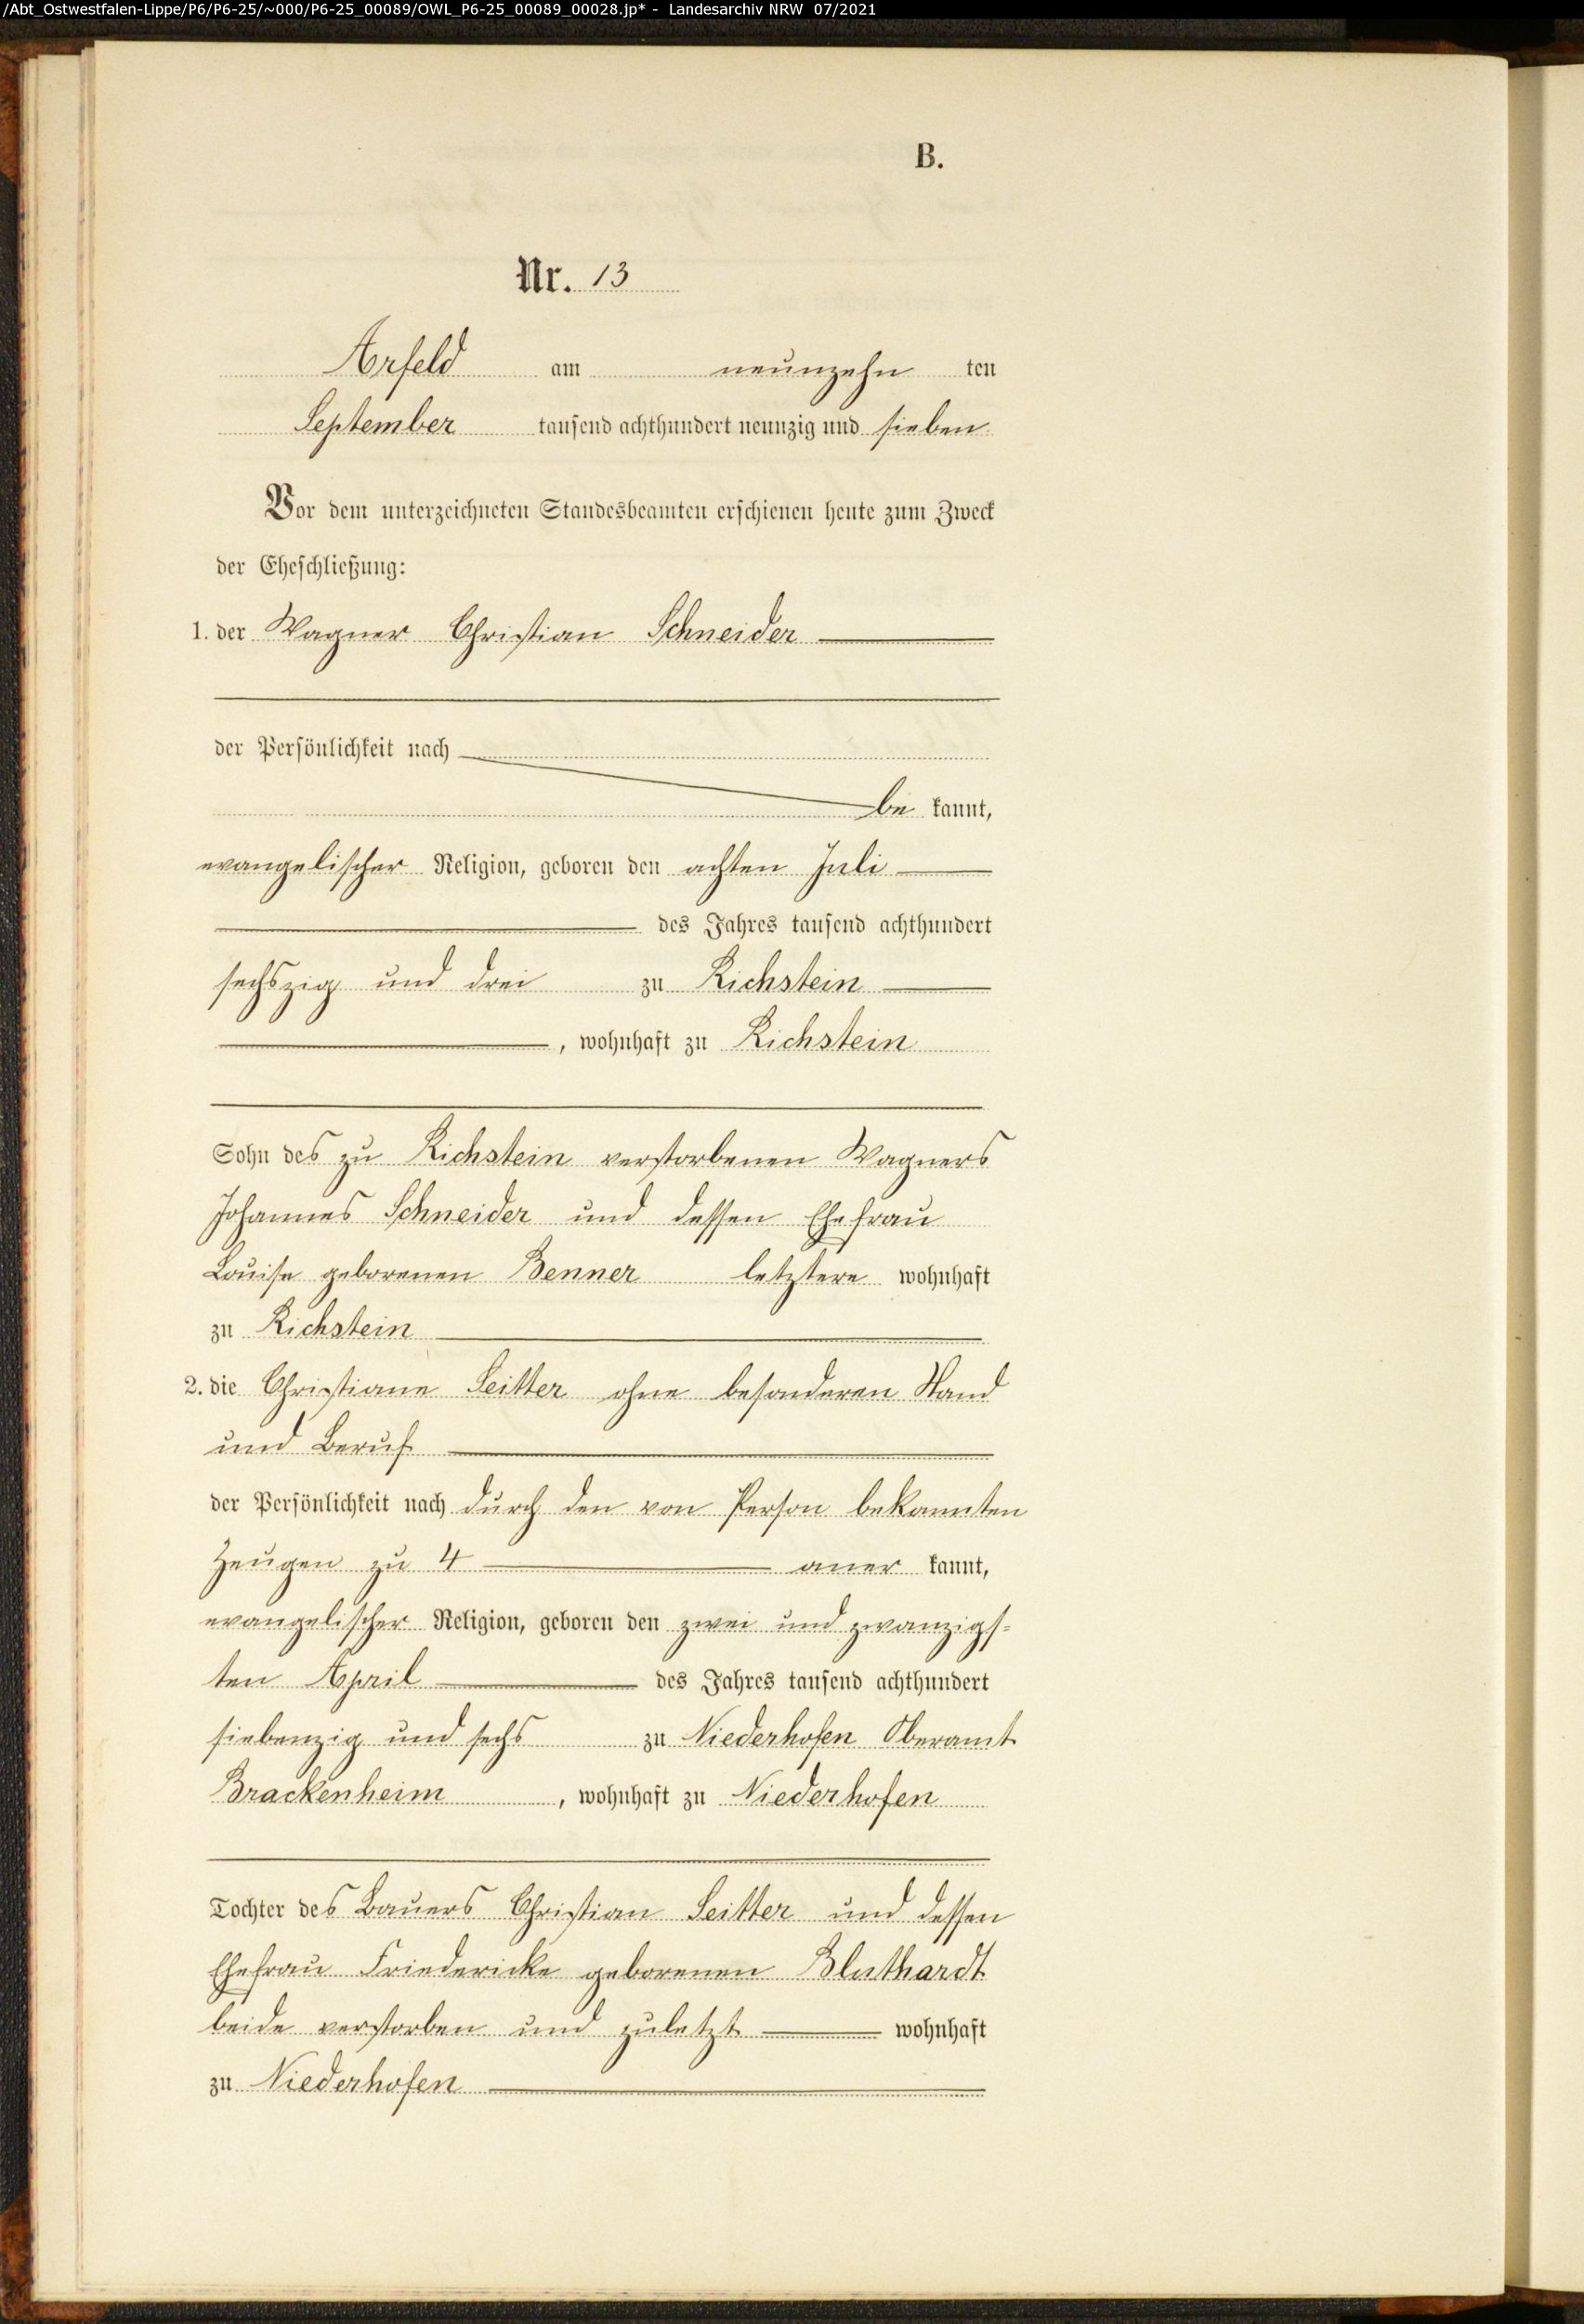 /Abt_Ostwestfalen-Lippe/P6/P6-25/~000/P6-25_00089/OWL_P6-25_00089_00028.jp* - Landesarchiv NRW 07/2021
B.
Nr. 13
Arfeld am neunzehn ten
September tausend achthundert neunzig und sieben
Vor dem unterzeichneten Standesbeamten erschienen heute zum Zweck
der Eheschließung:
1. der Wagner Christian Schneider
der Persönlichkeit nach
be kannt,
evangelischer Religion, geboren den achten Juli
des Jahres tausend achthundert
sechszig und drei zu Richstein
, wohnhaft zu Richstein
Sohn des zu Richstein verstorbenen Wagners
Johannes Schneider und dessen Ehefrau
Louise geborenen Benner letztere wohnhaft
zu Richstein
2. die Christiane Seitter ohne besonderen Stand
und Beruf
der Persönlichkeit nach durch den von Person bekannten
Zeugen zu 4 aner kannt,
evangelischer Religion, geboren den zwei und zwanzigs-
ten April des Jahres tausend achthundert
siebenzig und sechs zu Niederhofen Oberamt
Brackenheim , wohnhaft zu Niederhofen
Tochter des Bauers Christian Seitter und dessen
Ehefrau Friedericke geborenen Bluthardt
beide verstorben und zuletzt wohnhaft
zu Niederhofen